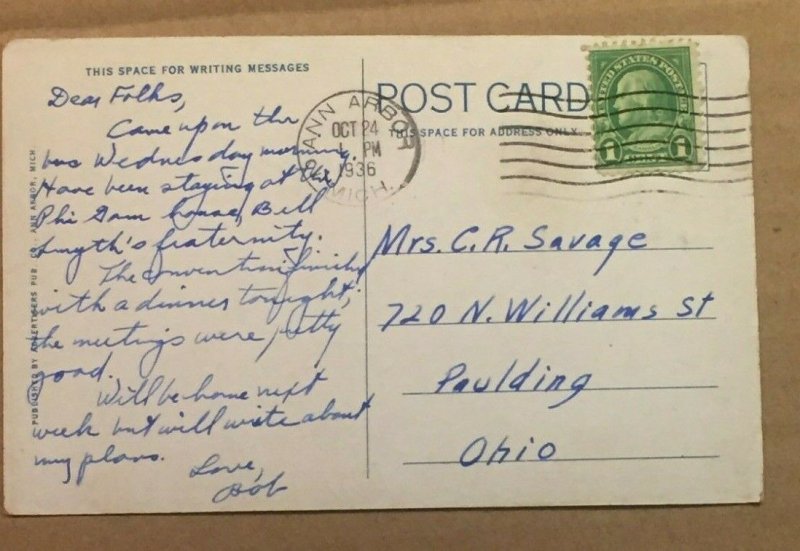 THIS SPACE FOR WRITING MESSAGES
Dear Folks,
Came upon the
bus Wednesday morning.
Have been staying at the
Phi Gam house, Bill
Smyth's fraternity.
The convention finishes
with a dinner tonight;
the meetings were pretty
good.
Will be home next
week but will write about
my plans.
Love,
Bob
PUBLISHED BY ADVERTISERS PUB. CO., ANN ARBOR, MICH.
POST CARD
THIS SPACE FOR ADDRESS ONLY
ANN ARBOR
OCT 24
PM
1936
MICH.
UNITED STATES POSTAGE
1 1
Mrs. C. R. Savage
720 N. Williams St
Paulding
Ohio